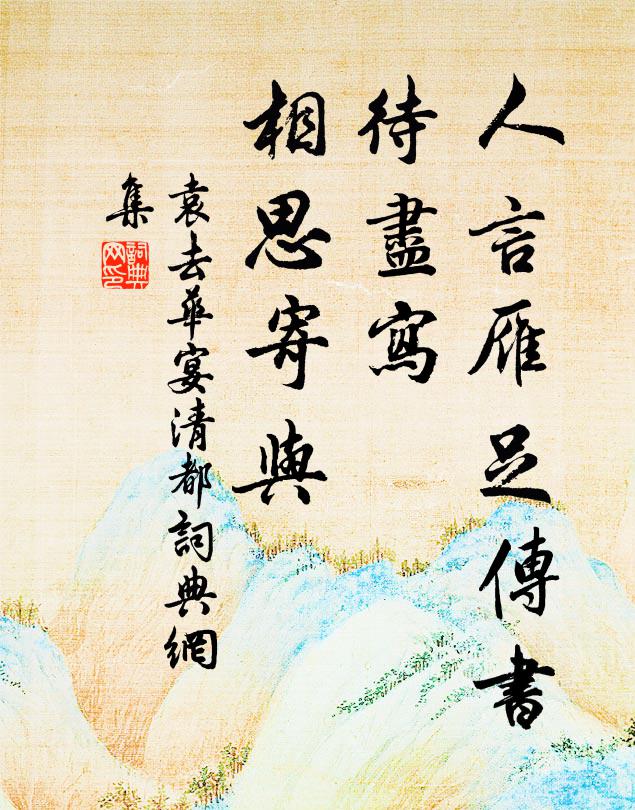 人言雁足傳書
待盡寫
相思寄與
袁去華宴清都詞典網
集
詞典
网印